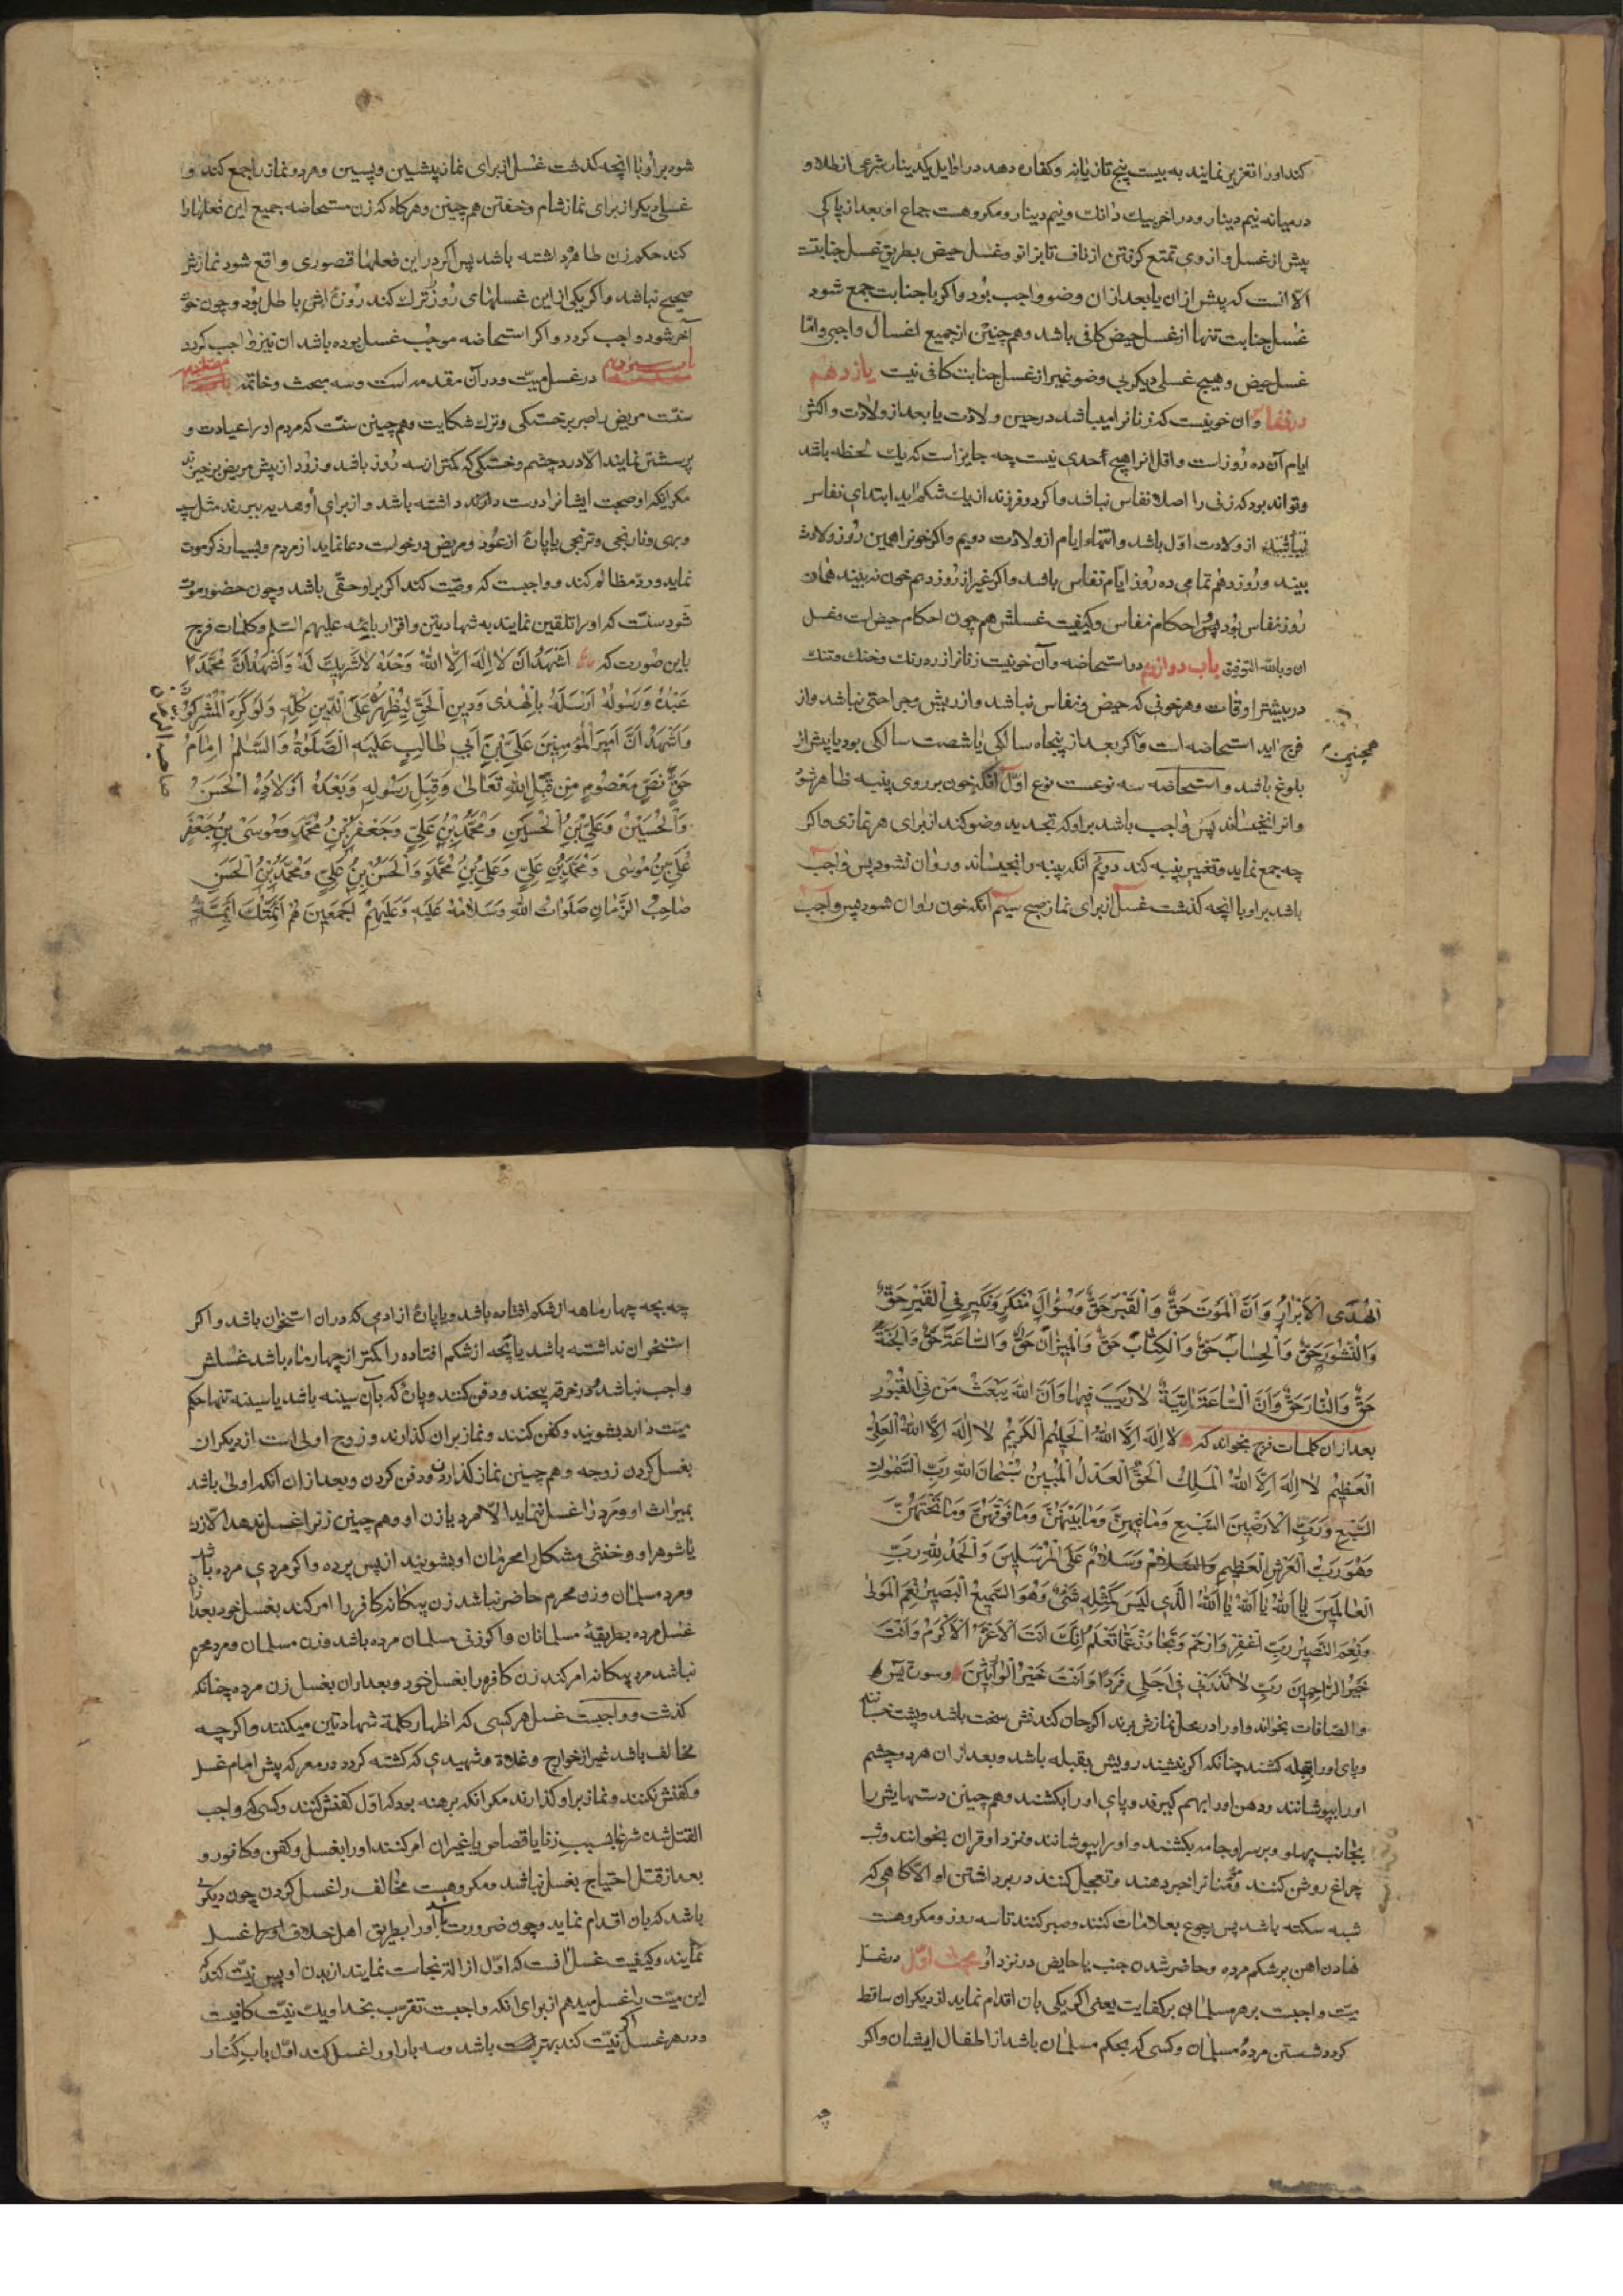 کند اورا تعزیر نمایند به بیست پنج تازیانه وکفاره دهد در اوایل یکدینار شرعی از طلا و
در میانه نیم دینار و در اخر بیك دانك ونیم دینار ومکروهست جماع او بعد از پاکی
پیش از غسل واز وی تمتع کرفتن از ناف تا بزانو وغسل حیض بطریق غسل جنابت
الا انست که پیش ازان یا بعد ازان وضو واجب بود واکر با جنابت جمع شود
غسل جنابت تنها از غسل حیض کافی باشد وهم چنین از جمیع اغسال واجبی واما
غسل حیض وهیچ غسلی دیکر بی وضو غیر از غسل جنابت کافی نیت یازدهم
در نفاس وان خونیست که زنانرا میباشد در حین ولادت یا بعد از ولادت واکثر
ایام آن ده روز است واقل انرا هیچ حدی نیست چه جایز است که یك لحظه باشد
وتواند بود که زنی را اصلا نفاس نباشد واکر دو فرزند از یك شکم اید ابتدای نفاس
از ولادت اول باشد وانتهاء ایام از ولادت دویم واکر خونرا همین روز ولادت
بیند وروز دهم تمامی ده روز ایام نفاس باشد واکر غیر از روز دهم خون نه بیند همان
روز نفاس بود پس احکام نفاس وکیفیت غسلش هم چون احکام حیض است وغسل
ان وبالله التوفیق باب دوازدهم در استحاضه وآن خونیت زنانرا زرد رنك وخنك وتنك
در بیشتر اوقات وهر خونی که حیض ونفاس نباشد واز ریش وجراحتی نباشد واز
فرج اید استحاضه است واکر بعد از پنجاه سالکی یا شصت سالکی بود یا پیش از
همچنین
بلوغ باشد واستحاضه سه نوعست نوع اول انکه خون بر روی پنبه ظاهر شود
وانرا نخیساند پس واجب باشد بر او که تجدید وضو کند از برای هر نمازی واکر
چه جمع نماید وتغییر پنبه کند دویم انکه پنبه را بخیساند وروان نشود پس واجب
باشد بر او با انچه کذشت غسل از برای نماز صبح سیم انکه خون روان شود پس واجب
شود بر او با انچه کذشت غسل از برای نماز پیشین وپسین وهر دو نماز را جمع کند و
غسلی دیکر از برای نماز شام وخفتن هم چنین وهر کاه که زن مستحاضه جمیع این فعلها را
کند حکم زن طاهر داشته باشد پس اکر در این فعلها قصوری واقع شود نمازش
صحیح نباشد واکر یکی از این غسلهای روز ترك کند روزه اش باطل بود وچون خون
آخر شود واجب کردد واکر استحاضه موجب غسل بوده باشد ان نیز واجب کردد
باب سیزدهم در غسل میت ودر آن مقدمه است وسه مبحث وخاتمه
سنت مریض را صبر بر خستکی وترك شکایت وهم چنین سنت که مردم اورا عیادت و
پرسش نمایند الا درد چشم وخستکی که کمتر از سه روز باشد وزود از پیش مریض برخیزند
مکر انکه او صحبت ایشانرا دوست دارد داشته باشد واز برای او هدیه ببرند مثل سیب
وبهی ونارنجی وترنجی یا پارهٔ از عود ومریض درخواست دعا نماید از مردم وبسیار ذکر موت
نماید ورد مظالم کند وواجبت که وصیت کند اکر بر او حقی باشد وچون حضور موت
شود سنت که اورا تلقین نمایند به شهادتین واقرار بائمه علیهم السلم وکلمات فرج
باین صورت که اَشْهَدُ اَنْ لا اِلهَ اِلاَّ اللهُ وَحْدَهُ لا شَرِیكَ لَهُ وَاَشْهَدُ اَنَّ مُحَمَّدًا
عَبْدُهُ وَرَسُولُهُ اَرْسَلَهُ بِالْهُدٰی وَدِینِ الْحَقِّ لِیُظْهِرَهُ عَلَی الدّینِ کُلِّهِ وَلَوْ کَرِهَ الْمُشْرِکُونَ
وَاَشْهَدُ اَنَّ اَمِیرَ الْمُؤْمِنِینَ عَلِیَّ بْنَ اَبی طالِبٍ عَلَیْهِ الصَّلٰوةُ وَالسَّلٰمُ اِمامُ
حَقٍّ نَصٍّ مَعْصُومٍ مِنْ قِبَلِ اللهِ تَعالٰی وَقِبَلِ رَسُولِهِ وَبَعْدَهُ اَوْلادُهُ الْحَسَنُ
وَالْحُسَیْنُ وَعَلِیُّ بْنُ الْحُسَیْنِ وَمُحَمَّدُ بْنُ عَلِیٍّ وَجَعْفَرُ بْنُ مُحَمَّدٍ وَمُوسَی بْنُ جَعْفَرٍ
عَلِیُّ بْنُ مُوسٰی وَمُحَمَّدُ بْنُ عَلِیٍّ وَعَلِیُّ بْنُ مُحَمَّدٍ وَالْحَسَنُ بْنُ عَلِیٍّ وَمُحَمَّدُ بْنُ الْحَسَنِ
صاحِبُ الزَّمانِ صَلَواتُ اللهِ وَسَلامُهُ عَلَیْهِ وَعَلَیْهِمْ اَجْمَعِینَ هُمْ اَئِمَّتُكَ اَئِمَّةُ
الْهُدَی الْاَبْرارُ وَاَنَّ الْمَوْتَ حَقٌّ وَالْقَبْرَ حَقٌّ وَسُؤالَ مُنْکَرٍ وَنَکِیرٍ فِی الْقَبْرِ حَقٌّ
وَالنُّشُورَ حَقٌّ وَالْحِسابَ حَقٌّ وَالْکِتابَ حَقٌّ وَالْمِیزانَ حَقٌّ وَالسّاعَةَ حَقٌّ وَالْجَنَّةَ
حَقٌّ وَالنّارَ حَقٌّ وَاَنَّ السّاعَةَ اٰتِیَةٌ لا رَیْبَ فِیها وَاَنَّ اللهَ یَبْعَثُ مَنْ فِی الْقُبُورِ
بعد ازان کلمات فرج بخواند که لا اِلهَ اِلاَّ اللهُ الْحَلِیمُ الْکَرِیمُ لا اِلهَ اِلاَّ اللهُ الْعَلِیُّ
الْعَظِیمُ لا اِلهَ اِلاَّ اللهُ الْمَلِكُ الْحَقُّ الْعَدْلُ الْمُبِینُ سُبْحانَ اللهِ رَبِّ السَّمٰواتِ
السَّبْعِ وَرَبِّ الْاَرَضِینَ السَّبْعِ وَما فِیهِنَّ وَما بَیْنَهُنَّ وَما فَوْقَهُنَّ وَما تَحْتَهُنَّ
وَهُوَ رَبُّ الْعَرْشِ الْعَظِیمِ وَسَلامٌ عَلَی الْمُرْسَلِینَ وَالْحَمْدُ لِلّهِ رَبِّ
الْعالَمِینَ یا اَللهُ یا اَللهُ یا اَللهُ الَّذِی لَیْسَ کَمِثْلِهِ شَیْءٌ وَهُوَ السَّمِیعُ الْبَصِیرُ نِعْمَ الْمَوْلٰی
وَنِعْمَ النَّصِیرُ رَبِّ اغْفِرْ وَارْحَمْ وَتَجاوَزْ عَمّا تَعْلَمُ اِنَّكَ اَنْتَ الْاَعَزُّ الْاَکْرَمُ وَاَنْتَ
خَیْرُ الرّاحِمِینَ رَبِّ لا تَذَرْنِی فِی اَجَلِی فَرْدًا وَاَنْتَ خَیْرُ الْوارِثِینَ وسوره یس
والصافات بخواند واورا در محل نمازش برند اکر جان کندنش سخت باشد وپشت
وپای اورا بقبله کشند چنانکه اکر بنشیند رویش بقبله باشد وبعد از ان هر دو چشم
اورا بپوشانند ودهن اورا بهم کیرند وپای اورا بکشند وهم چنین دستهایش را
بجانب پهلو وبر سر او جامه بکشند واورا بپوشانند ونزد او قران بخوانند وشب
چراغ روشن کنند ومؤمنانرا خبر دهند وتعجیل کنند در برداشتن او الا کاهی که
شبه سکته باشد پس رجوع بعلامات کنند وصبر کنند تا سه روز ومکروهست
نهادن اهن بر شکم مرده وحاضر شدن جنب یا حایض در نزد او مبحث اول در غسل
میت واجبت بر هر مسلمان بر کفایت یعنی اکر یکی بان اقدام نماید از دیکران ساقط
کردد شستن مرده مسلمان وکسی که بحکم مسلمان باشد از اطفال ایشان واکر
چه
چه بچه چهار ماهه از شکم افتاده باشد ویا پارهٔ از ادمی که دران استخوان باشد واکر
استخوان نداشته باشد یا بچه از شکم افتاده را کمتر از چهار ماه باشد غسلش
واجب نباشد در خرقه پیچند ودفن کنند وپارهٔ که بآن سینه باشد یا سینه تنها حکم
میت دارد بشویند وکفن کنند ونماز بران کذارند وزوج اولی است از دیکران
بغسل کردن زوجه وهم چنین نماز کذاردن ودفن کردن وبعد ازان انکه اولی باشد
بمیراث او ومرد را غسل ننماید الا مرد یا زن او وهم چنین زنرا غسل ندهد الا زن
یا شوهر او وخنثی مشکل را محرمان او بشویند از پس پرده واکر مردی مرده باشد
ومرد مسلمان وزن محرم حاضر نباشد زن بیکانه کافر را امر کند بغسل خود بعد ازان
غسل مرده بطریقهٔ مسلمانان واکر زنی مسلمان مرده باشد وزن مسلمان ومرد محرم
نباشد مرد بیکانه امر کند زن کافره را بغسل خود وبعد ازان بغسل زن مرده چنانکه
کذشت وواجبت غسل هر کسی که اظهار کلمهٔ شهادتین میکند واکر چه
مخالف باشد غیر از خوارج وغلاة وشهیدی که کشته کردد در معرکه پیش امام غسل
وکفنش نکنند ونماز بر او کذارند مکر انکه برهنه بود که اول کفنش کنند وکسی که واجب
القتل شده شرعا بسبب زنا یا قصاص یا غیر ان امر کنند اورا بغسل وکفن وکافور و
بعد از قتل احتیاج بغسل نباشد ومکروهست مخالف را غسل کردن چون دیکری
باشد که بان اقدام نماید وچون ضرورت اورا بطریق اهل خلاف غسل
نمایند وکیفیت غسل انست که اول ازالهٔ نجاست نمایند از بدن او پس نیت کند که
این میت را غسل میدهم از برای انکه واجبت تقرب بخدا ویك نیت کافیت
ودر هر غسل اکر نیت کند بهتر باشد وسه بار اورا غسل کند اول باب کنار